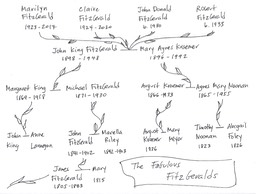 Marilyn FitzGerald 1923-2014
Claire FitzGerald 1924-2020
John Donald FitzGerald b. 1930
Robert FitzGerald b. 1935
John King FitzGerald 1895-1978
Mary Agnes Kraemer 1896-1992
Margaret King
Michael FitzGerald
August Kraemer
Agnes Mary Noonan 1865-1955
John King
Anne
John FitzGerald
Marcella Riley
August Kraemer
Mary Meyer
Timothy Noonan 1823
Abigail Foley 1826
James FitzGerald 1805-1883
Mary 1815
The Fabulous
FitzGeralds